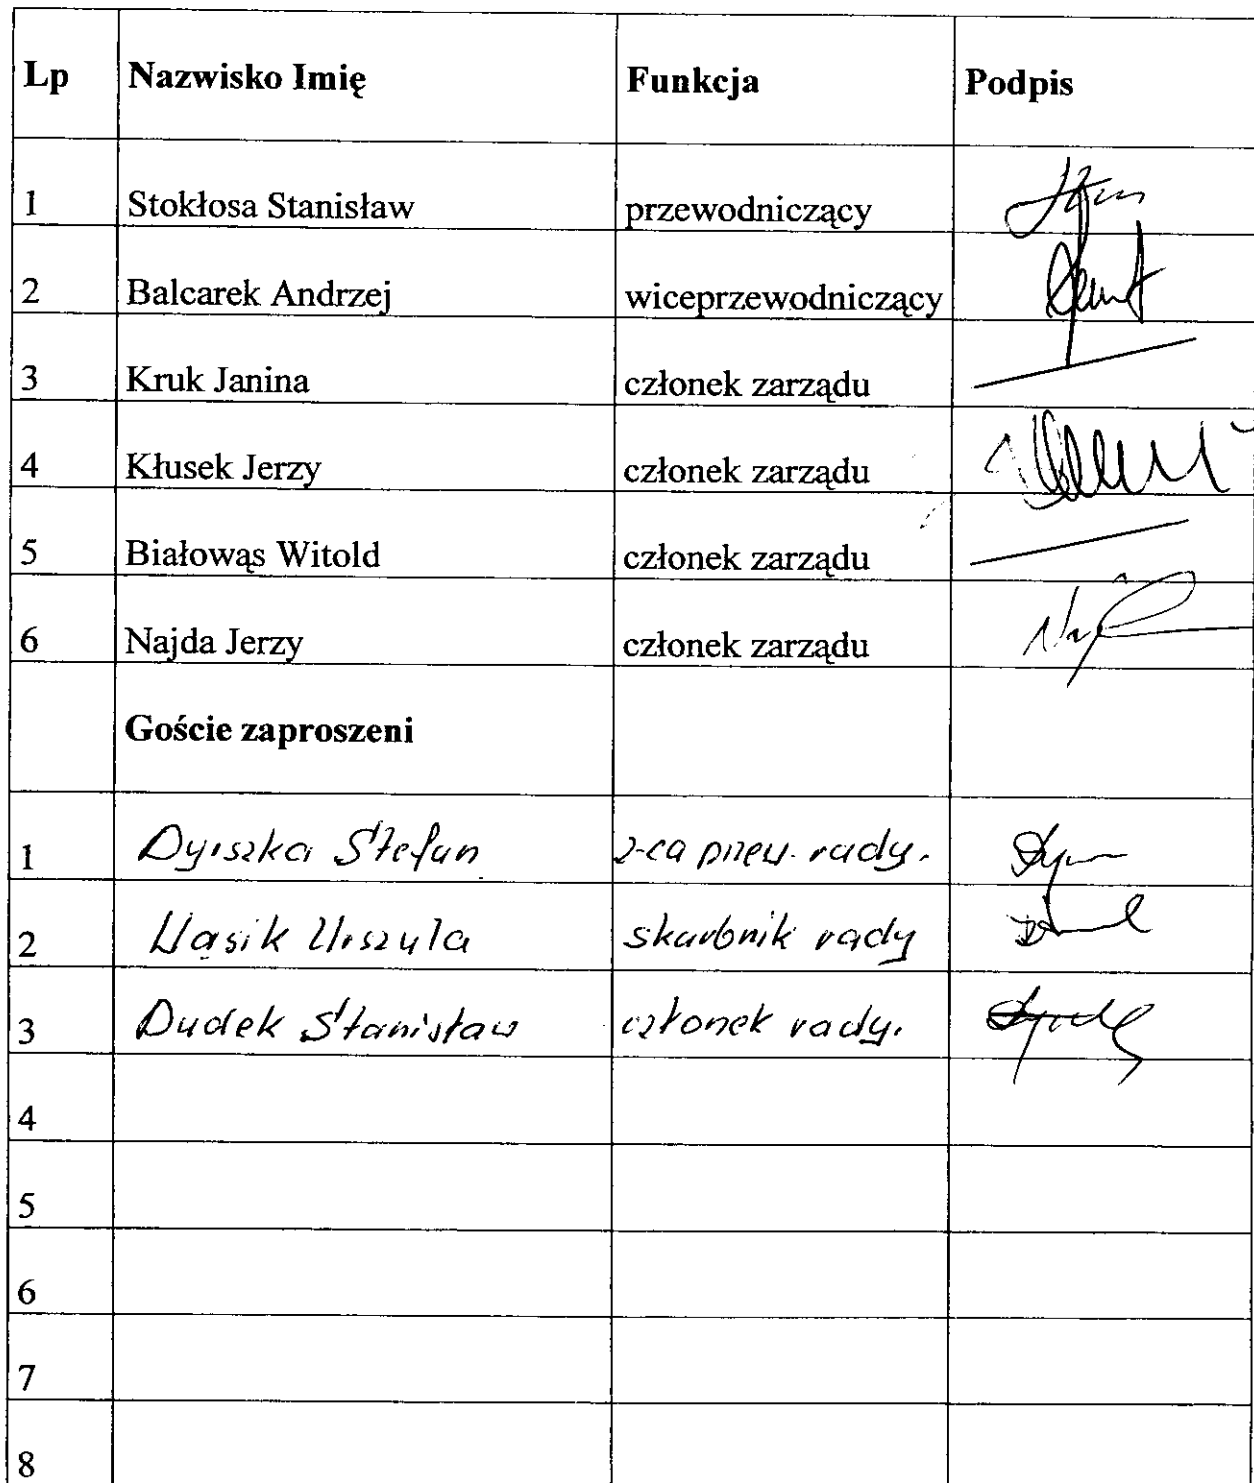 Lp Nazwisko Imię Funkcja Podpis
1 Stokłosa Stanisław przewodniczący
2 Balcarek Andrzej wiceprzewodniczący
3 Kruk Janina członek zarządu
4 Kłusek Jerzy członek zarządu
5 Białowąs Witold członek zarządu
6 Najda Jerzy członek zarządu
Goście zaproszeni
1 Dyiszka Stefan z-ca przew. rady.
2 Wąsik Urszula skarbnik rady
3 Dudek Stanisław członek rady.
4
5
6
7
8